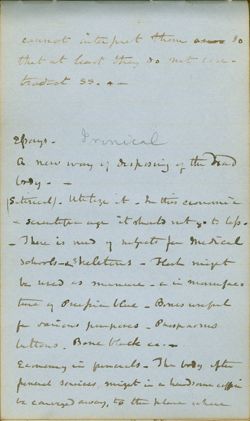 cannot interpret them so
that at least they do not con-
tradict SS. + —
Essays — Ironical
A new way of disposing of the dead
body. —
(Satirical). Utilize it — In this economic
- scientific age it should not go to loss.
- There is need of subjects for Medical
schools & Skeletons — Flesh might
be used as manure — & in manufac
ture of Prussian blue — Bones useful
for various purposes — Phosphorus
buttons. Bone black &c. —
Economy in funerals — The body after
funeral services, might in a handsome coffin
be conveyed away, to the place where